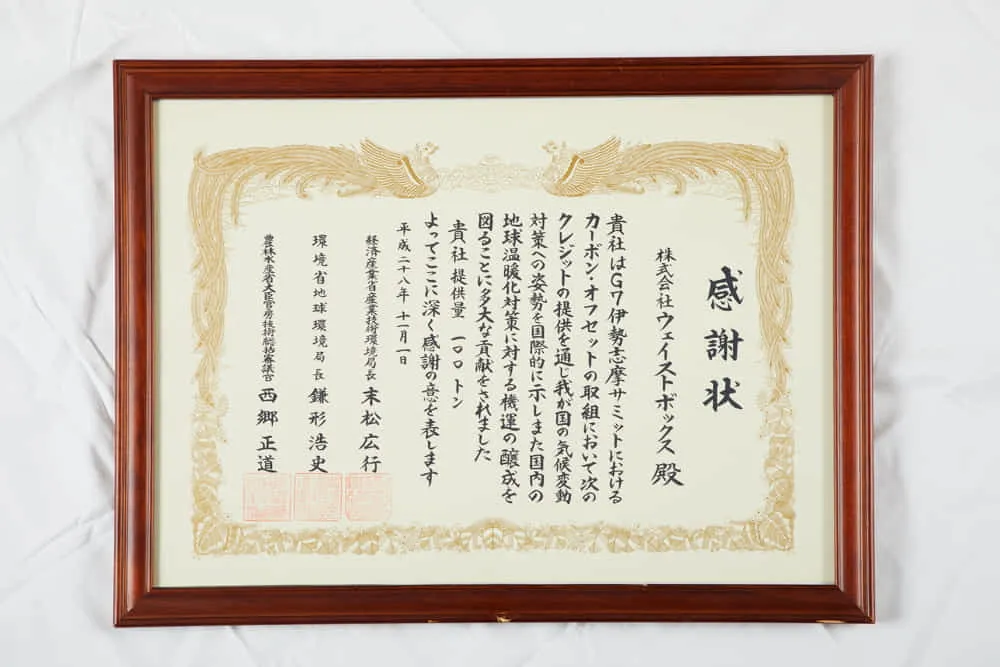 感謝状
株式会社ウェイストボックス 殿
貴社はG7伊勢志摩サミットにおける
カーボン・オフセットの取組において次の
クレジットの提供を通じ我が国の気候変動
対策への姿勢を国際的に示しまた国内の
地球温暖化対策に対する機運の醸成を
図ることに多大な貢献をされました
貴社 提供量 一〇〇トン
よってここに深く感謝の意を表します
平成二十八年 十一月一日
経済産業省産業技術環境局長 末松 広行
環境省地球環境局長 鎌形 浩史
農林水産省大臣官房技術総括審議官 西郷 正道